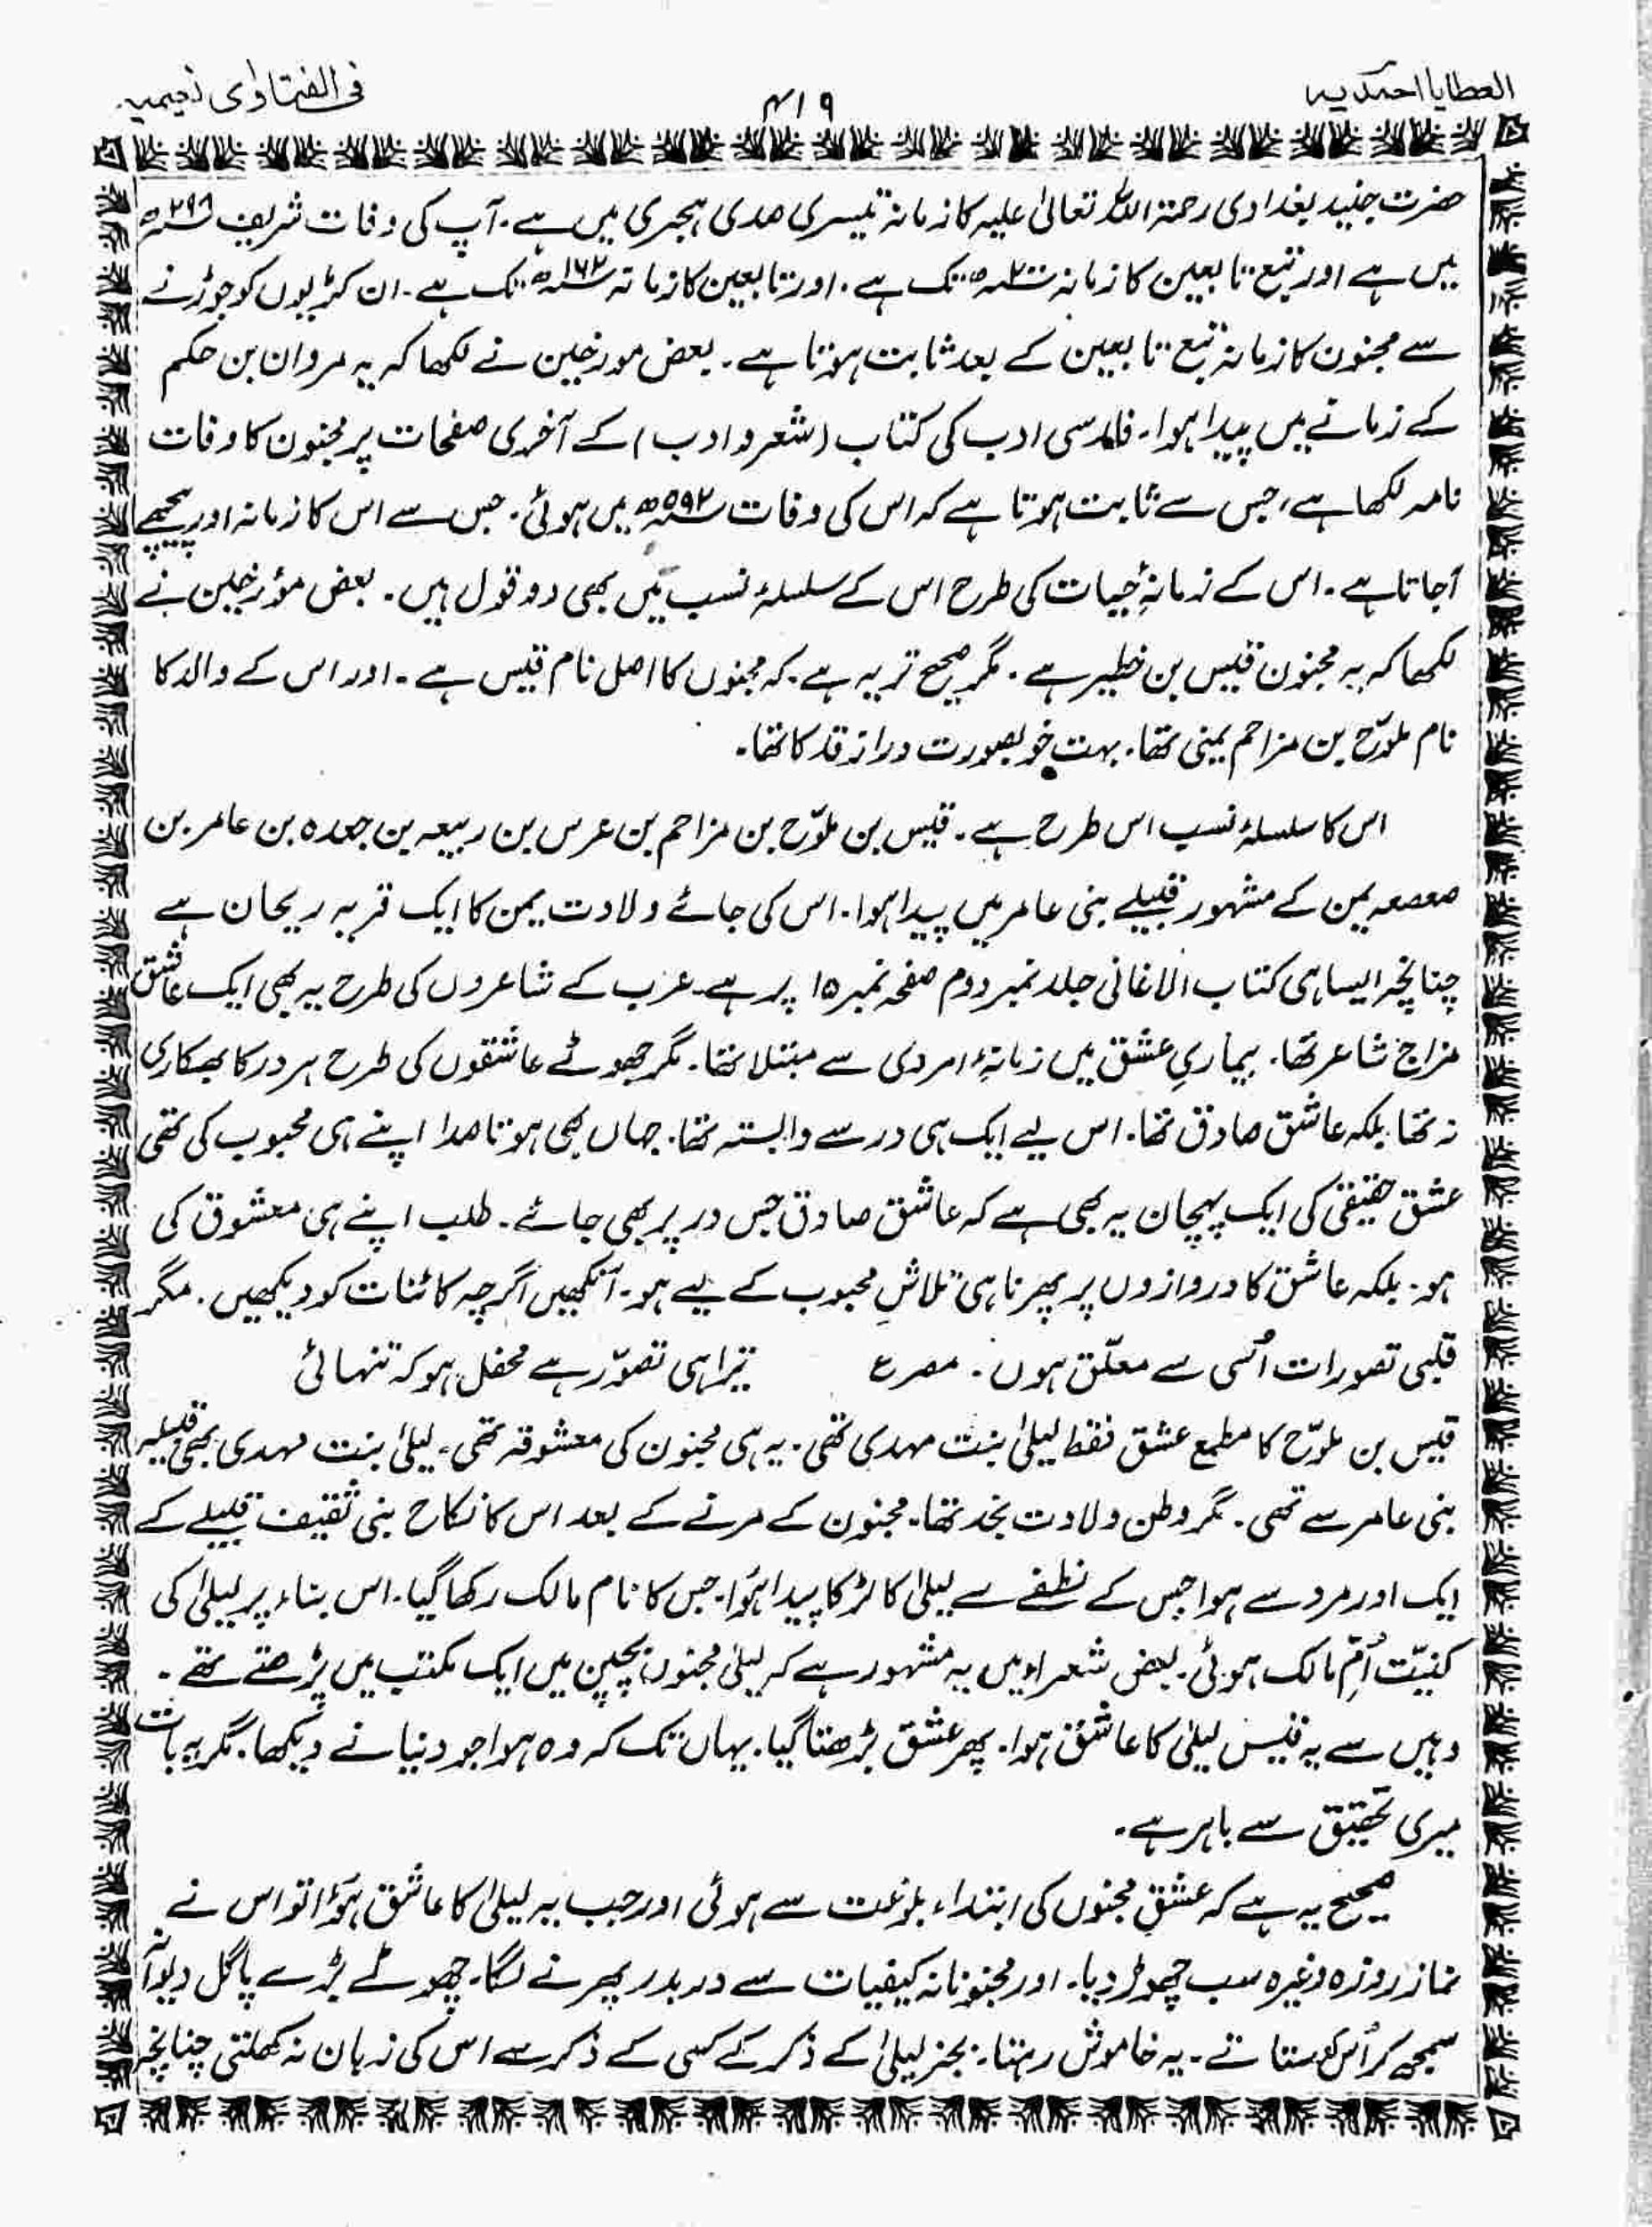 العطایا احمدیہ
۴۱۹
فی الفتاوٰی نعیمیہ
حضرت جنید بغدادی رحمۃ اللہ تعالیٰ علیہ کا زمانہ تیسری صدی ہجری میں ہے۔ آپ کی وفات شریف ۲۹۸ھ
میں ہے اور تبع تابعین کا زمانہ ۲۰۰ھ تک ہے۔ اور تابعین کا زمانہ ۱۶۲ھ تک ہے۔ ان کڑیوں کو جوڑنے
سے مجنون کا زمانہ تبع تابعین کے بعد ثابت ہوتا ہے۔ بعض مورخین نے لکھا کہ یہ مروان بن حکم
کے زمانے میں پیدا ہوا۔ فارسی ادب کی کتاب (شعر و ادب) کے آخری صفحات پر مجنون کا وفات
نامہ لکھا ہے، جس سے ثابت ہوتا ہے کہ اس کی وفات ۵۹۲ھ میں ہوئی۔ جس سے اس کا زمانہ اور پیچھے
آجاتا ہے۔ اس کے زمانۂ حیات کی طرح اس کے سلسلۂ نسب میں بھی دو قول ہیں۔ بعض مؤرخین نے
لکھا کہ یہ مجنون قیس بن خطیر ہے۔ مگر صحیح تر یہ ہے کہ مجنوں کا اصل نام قیس ہے۔ اور اس کے والد کا
نام ملوّح بن مزاحم یمنی تھا۔ بہت خوبصورت دراز قد کا تھا۔
اس کا سلسلۂ نسب اس طرح ہے۔ قیس بن ملوّح بن مزاحم بن عرس بن ربیعہ بن جعدہ بن عامر بن
صعصعہ یمن کے مشہور قبیلے بنی عامر میں پیدا ہوا۔ اس کی جائے ولادت یمن کا ایک قریہ ریحان ہے
چنانچہ ایسا ہی کتاب الاغانی جلد نمبر دوم صفحہ نمبر ۱۵ پر ہے۔ عرب کے شاعروں کی طرح یہ بھی ایک عاشق
مزاج شاعر تھا۔ بیماریِ عشق میں زمانۂ امردی سے مبتلا تھا۔ مگر جھوٹے عاشقوں کی طرح ہر در کا بھکاری
نہ تھا بلکہ عاشق صادق تھا۔ اس لیے ایک ہی در سے وابستہ تھا۔ جہاں بھی ہوتا صدا اپنے ہی محبوب کی تھی
عشق حقیقی کی ایک پہچان یہ بھی ہے کہ عاشق صادق جس در پر بھی جائے۔ طلب اپنے ہی معشوق کی
ہو۔ بلکہ عاشق کا دروازوں پر پھرنا ہی تلاشِ محبوب کے لیے ہو۔ آنکھیں اگرچہ کائنات کو دیکھیں۔ مگر
قلبی تصورات اُسی سے معلّق ہوں۔ مصرع تیرا ہی تصوّر ہے محفل ہو کہ تنہائی
قیس بن ملوّح کا مطمع عشق فقط لیلیٰ بنت مہدی تھی۔ یہ ہی مجنون کی معشوقہ تھی۔ لیلیٰ بنت مہدی بھی قبیلہ
بنی عامر سے تھی۔ مگر وطن ولادت نجد تھا۔ مجنون کے مرنے کے بعد اس کا نکاح بنی ثقیف قبیلے کے
ایک اور مرد سے ہوا جس کے نطفے سے لیلیٰ کا لڑکا پیدا ہوا۔ جس کا نام مالک رکھا گیا۔ اس بناء پر لیلیٰ کی
کنیّت اُمِّ مالک ہوئی۔ بعض شعراء میں یہ مشہور ہے کہ لیلیٰ مجنوں بچپن میں ایک مکتب میں پڑھتے تھے۔
وہیں سے یہ قیس لیلیٰ کا عاشق ہوا۔ پھر عشق بڑھتا گیا۔ یہاں تک کہ وہ ہوا جو دنیا نے دیکھا۔ مگر یہ بات
میری تحقیق سے باہر ہے۔
صحیح یہ ہے کہ عشقِ مجنوں کی ابتداء بلوغت سے ہوئی اور جب یہ لیلیٰ کا عاشق ہوا تو اس نے
نماز روزہ وغیرہ سب چھوڑ دیا۔ اور مجنونانہ کیفیات سے در بدر پھرنے لگا۔ چھوٹے بڑے پاگل دیوانہ
سمجھ کر اُس کو ستاتے۔ یہ خاموش رہتا۔ بجز لیلیٰ کے ذکر کے کسی کے ذکر سے اس کی زبان نہ کھلتی چنانچہ